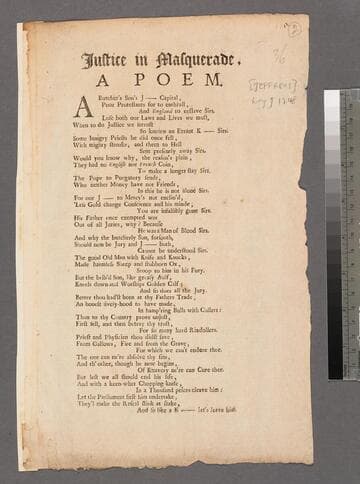 Justice in Masquerade.
A POEM.
A Butcher's Son's J—— Capital,
Poor Protestants for to enthrall,
And England to enslave Sirs.
Lose both our Laws and Lives we must,
When to do Justice we intrust
So known an Errant K—— Sir.
Some hungry Priests he did once fell,
With mighty stroaks, and them to Hell
Sent presently away Sirs.
Would you know why, the reason's plain,
They had no English nor French Coin,
To make a longer stay Sirs.
The Pope to Purgatory sends,
Who neither Money have nor Friends,
In this he is not alone Sirs.
For our J—— to Mercy's not enclin'd,
'Less Gold change Conscience and his minde,
You are infallibly gone Sirs.
His Father once exempted was
Out of all Juries, why? Because
He was a Man of Blood Sirs.
And why the butcherly Son, forsooth,
Should now be Jury and J—— both,
Cannot be understood Sirs.
The good Old Man with Knife and Knocks,
Made harmless Sheep and stubborn Ox,
Stoop to him in his Fury.
But the brib'd Son, like greasy Oaf,
Kneels down and Worships Golden Calf;
And so does all the Jury.
Better thou hadst been at thy Fathers Trade,
An honest lively-hood to have made,
In hamp'ring Bulls with Collers:
Than to thy Country prove unjust,
First sell, and then betray thy trust,
For so many hard Rixdollers.
Priest and Physician thou didst save,
From Gallows, Fire and from the Grave,
For which we can't endure thee.
The one can ne're absolve thy sins,
And th' other, though he now begins,
Of Knavery ne're can Cure thee.
But lest we all should end his life,
And with a keen-whet Chopping-knife,
In a Thousand peices cleave him:
Let the Parliament first him undertake,
They'l make the Rascal stink at stake,
And so like a K—— let's leave him.